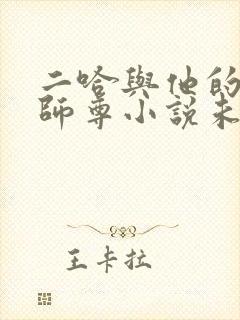 二哈與他的
師尊小說未
王卡拉